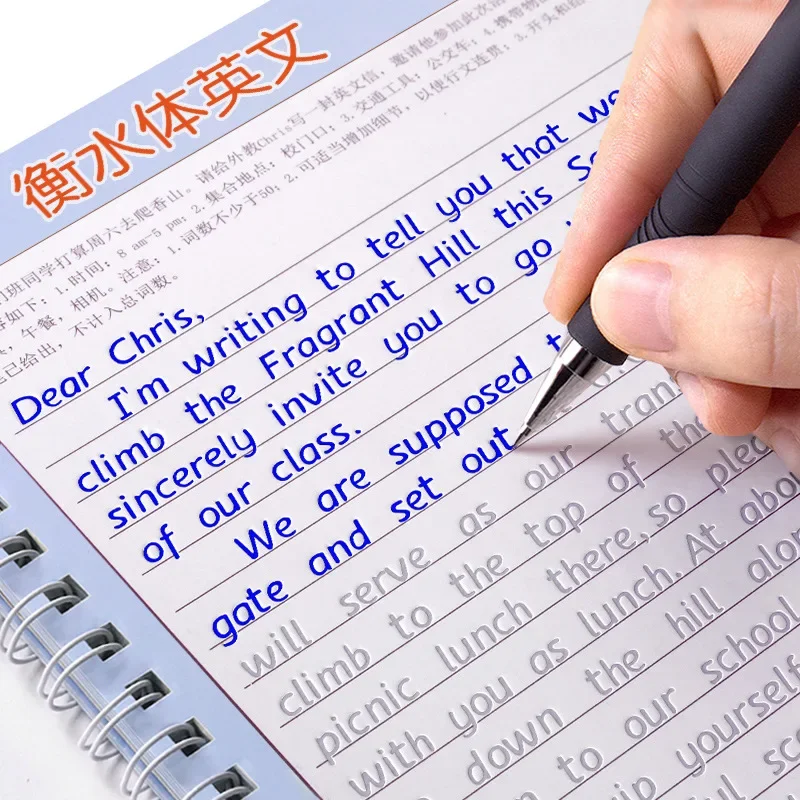 衡水体英文
们班同学打算周六去爬香山。请给外教Chris写一封英文信，邀请他参加此次活
如下：1.时间：8 am-5 pm；2.集合地点：校门口；3.交通工具：公交车；4.携带物
，午餐，相机。注意：1.词数不少于50；2.可适当增加细节，以使行文连贯；3.开头和结
已给出，不计入总词数。
Dear Chris,
I'm writing to tell you that we
climb the Fragrant Hill this Sa
sincerely invite you to go
of our class.
We are supposed t
gate and set out
will serve as our tran
climb to the top of the
picnic lunch there, so plea
with you as lunch. At abo
down the hill alon
to our school
yourself
ful